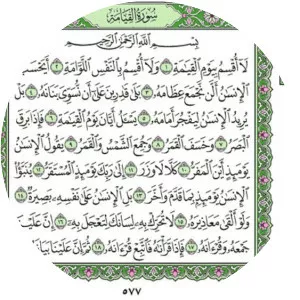 سُورَةُ القِيَامَةِ
بِسْمِ ٱللَّهِ ٱلرَّحْمَٰنِ ٱلرَّحِيمِ
لَآ أُقْسِمُ بِيَوْمِ ٱلْقِيَٰمَةِ ١ وَلَآ أُقْسِمُ بِٱلنَّفْسِ ٱللَّوَّامَةِ ٢ أَيَحْسَبُ
ٱلْإِنسَٰنُ أَلَّن نَّجْمَعَ عِظَامَهُۥ ٣ بَلَىٰ قَٰدِرِينَ عَلَىٰٓ أَن نُّسَوِّىَ بَنَانَهُۥ ٤ بَلْ
يُرِيدُ ٱلْإِنسَٰنُ لِيَفْجُرَ أَمَامَهُۥ ٥ يَسْـَٔلُ أَيَّانَ يَوْمُ ٱلْقِيَٰمَةِ ٦ فَإِذَا بَرِقَ
ٱلْبَصَرُ ٧ وَخَسَفَ ٱلْقَمَرُ ٨ وَجُمِعَ ٱلشَّمْسُ وَٱلْقَمَرُ ٩ يَقُولُ ٱلْإِنسَٰنُ
يَوْمَئِذٍ أَيْنَ ٱلْمَفَرُّ ١٠ كَلَّا لَا وَزَرَ ١١ إِلَىٰ رَبِّكَ يَوْمَئِذٍ ٱلْمُسْتَقَرُّ ١٢ يُنَبَّؤُا۟
ٱلْإِنسَٰنُ يَوْمَئِذٍۭ بِمَا قَدَّمَ وَأَخَّرَ ١٣ بَلِ ٱلْإِنسَٰنُ عَلَىٰ نَفْسِهِۦ بَصِيرَةٌ ١٤
وَلَوْ أَلْقَىٰ مَعَاذِيرَهُۥ ١٥ لَا تُحَرِّكْ بِهِۦ لِسَانَكَ لِتَعْجَلَ بِهِۦٓ ١٦ إِنَّ عَلَيْنَا
جَمْعَهُۥ وَقُرْءَانَهُۥ ١٧ فَإِذَا قَرَأْنَٰهُ فَٱتَّبِعْ قُرْءَانَهُۥ ١٨ ثُمَّ إِنَّ عَلَيْنَا
٥٧٧